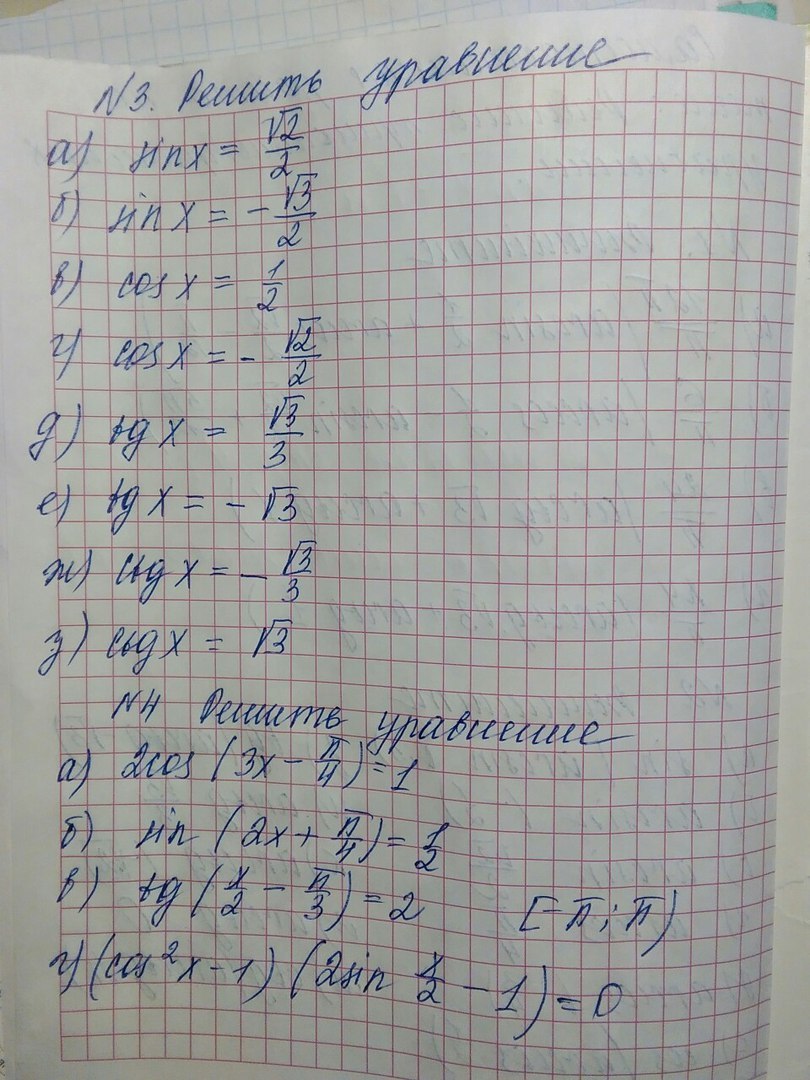 №3. Решить уравнение
а) sin x = √2/2
б) sin x = -√3/2
в) cos x = 1/2
г) cos x = -√2/2
д) tg x = √3/3
е) tg x = -√3
ж) ctg x = -√3/3
з) ctg x = √3
№4 Решить уравнение
а) 2cos (3x - π/4) = 1
б) sin (2x + π/4) = 1/2
в) tg (x/2 - π/3) = 2 [-π; π)
г) (cos²x - 1) (2sin x/2 - 1) = 0